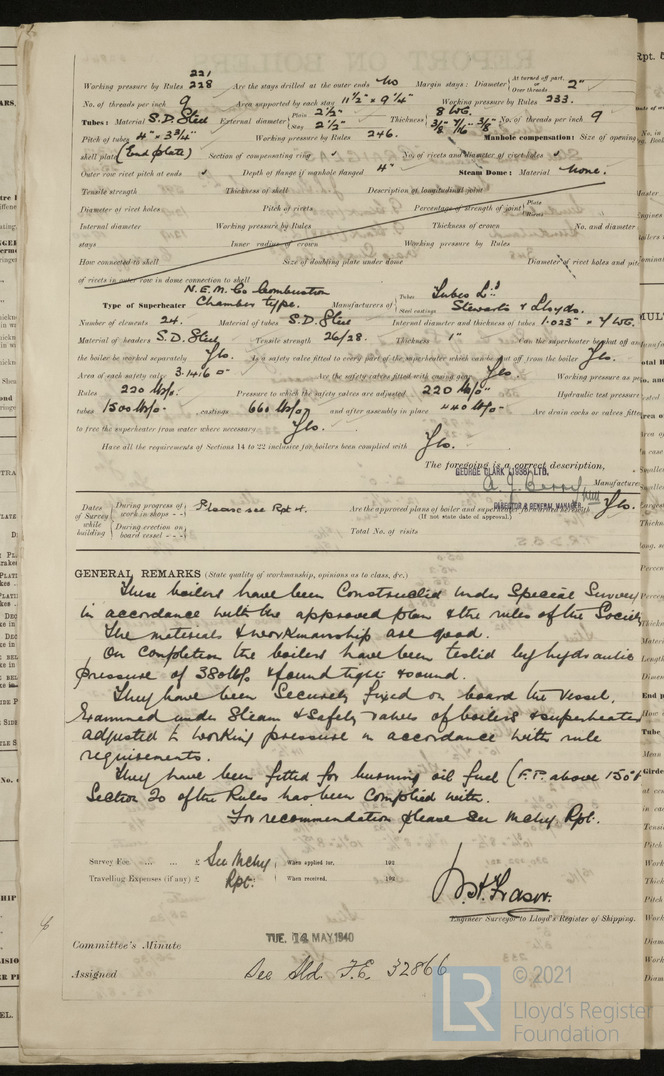 221
Working pressure by Rules 228 Are the stays drilled at the outer ends No Margin stays: Diameter { At turned off part, or Over threads 2"
No. of threads per inch 9 Area supported by each stay 11½" × 9¼" Working pressure by Rules 233.
Tubes: Material S.D. Steel External diameter { Plain 2½" Stay 2½" Thickness { 8 WG. 3/8" 7/16" 3/8" No. of threads per inch 9
Pitch of tubes 4" × 3¾" Working pressure by Rules 246. Manhole compensation: Size of opening
shell plate (End plate) Section of compensating ring No. of rivets and diameter of rivet holes
Outer row rivet pitch at ends Depth of flange if manhole flanged 4" Steam Dome: Material None.
Tensile strength Thickness of shell Description of longitudinal joint
Diameter of rivet holes Pitch of rivets Percentage of strength of joint { Plate Rivets
Internal diameter Working pressure by Rules Thickness of crown No. and diameter
stays Inner radius of crown Working pressure by Rules
How connected to shell Size of doubling plate under dome Diameter of rivet holes and pit
of rivets in outer row in dome connection to shell
Type of Superheater N.E.M. Co Combustion Chamber type. Manufacturers of { Tubes Tubes Ld Steel castings Stewarts & Lloyds.
Number of elements 24. Material of tubes S.D. Steel Internal diameter and thickness of tubes 1.023" × 7 WG.
Material of headers S.D. Steel Tensile strength 26/28. Thickness 1" Can the superheater be shut off an
the boiler be worked separately Yes. Is a safety valve fitted to every part of the superheater which can be shut off from the boiler Yes.
Area of each safety valve 3.1416 Are the safety valves fitted with easing gear Yes Working pressure as p
Rules 220 lbs/□" Pressure to which the safety valves are adjusted 220 lbs/□" Hydraulic test pressure
tubes 1500 lbs/□" castings 660 lbs/□" and after assembly in place 440 lbs/□" Are drain cocks or valves fitte
to free the superheater from water where necessary Yes.
Have all the requirements of Sections 14 to 22 inclusive for boilers been complied with Yes.
The foregoing is a correct description,
GEORGE CLARK (1938) LTD.
Manufactur
DIRECTOR & GENERAL MANAGER
Dates of Survey while building { During progress of work in shops - - } Please see Rpt 4. Are the approved plans of boiler and superheater forwarded herewith Yes.
(If not state date of approval.)
{ During erection on board vessel - - } Total No. of visits
GENERAL REMARKS (State quality of workmanship, opinions as to class, &c.)
These boilers have been Constructed under Special Survey
in accordance with the approved plan & the rules of the Society
The materials & workmanship are good.
On completion the boilers have been tested by hydraulic
pressure of 380 lbs & found tight & sound.
They have been Securely fixed on board the Vessel,
Examined under Steam & Safety valves of boilers & superheater
adjusted to working pressure in accordance with rule
requirements.
They have been fitted for burning oil fuel (F.P. above 150°F
Section 20 of the Rules has been Complied with.
For recommendation please see Mchy. Rpt.
Survey Fee ... ... £ See Mchy { When applied for, 192
Travelling Expenses (if any) £ Rpt. { When received, 192
Engineer Surveyor to Lloyd's Register of Shipping.
Committee's Minute TUE. 14 MAY 1940
Assigned See Sld F.E. 32866
LR
© 2021
Lloyd's Register
Foundation